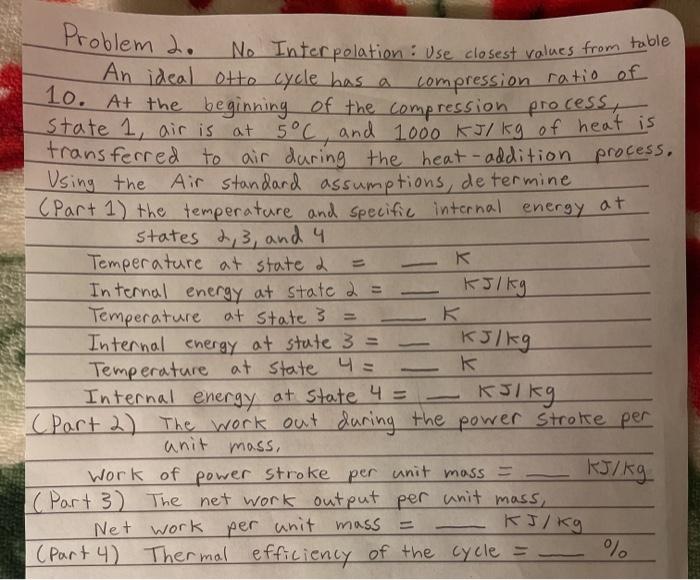 Problem 2. No Interpolation: Use closest values from table
An ideal Otto cycle has a compression ratio of
10. At the beginning of the compression process,
state 1, air is at 5°C, and 1000 KJ/kg of heat is
transferred to air during the heat-addition process.
Using the Air standard assumptions, determine
(Part 1) the temperature and specific internal energy at
states 2, 3, and 4
Temperature at state 2 = __ K
Internal energy at state 2 = __ KJ/kg
Temperature at state 3 = __ K
Internal energy at state 3 = __ KJ/kg
Temperature at state 4 = __ K
Internal energy at state 4 = __ KJ/kg
(Part 2) The work out during the power stroke per
unit mass,
Work of power stroke per unit mass = __ KJ/kg
(Part 3) The net work output per unit mass,
Net work per unit mass = __ KJ/kg
(Part 4) Thermal efficiency of the cycle = __ %